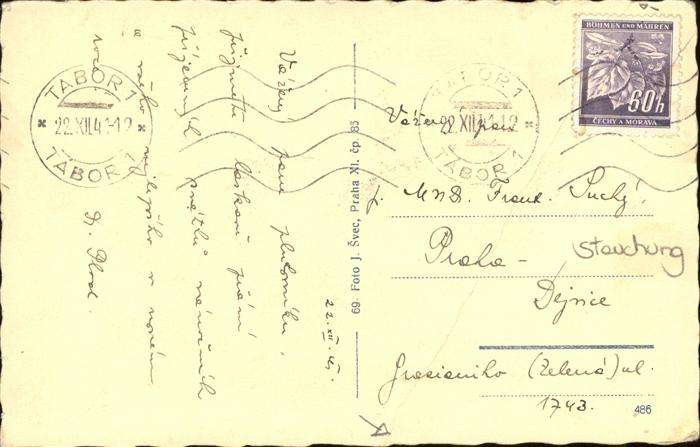 Vážený pane plukovníku,
přijměte laskavě přání
příjemných svátků vánočních
a všeho nejlepšího v novém
roce.
Dr. Plod.
22.XII.41.
69 Foto J. Švec, Praha XI. čp. 85
TÁBOR 1
22.XII.41-12
TÁBOR 1
TÁBOR 1
22.XII.41-12
TÁBOR 1
BÖHMEN UND MÄHREN
60h
ČECHY A MORAVA
Vážený pan
MUD. Frant. Suchý,
Praha -
stauchung
Dejvice
Grasianiho (Zelená) ul.
1743.
486